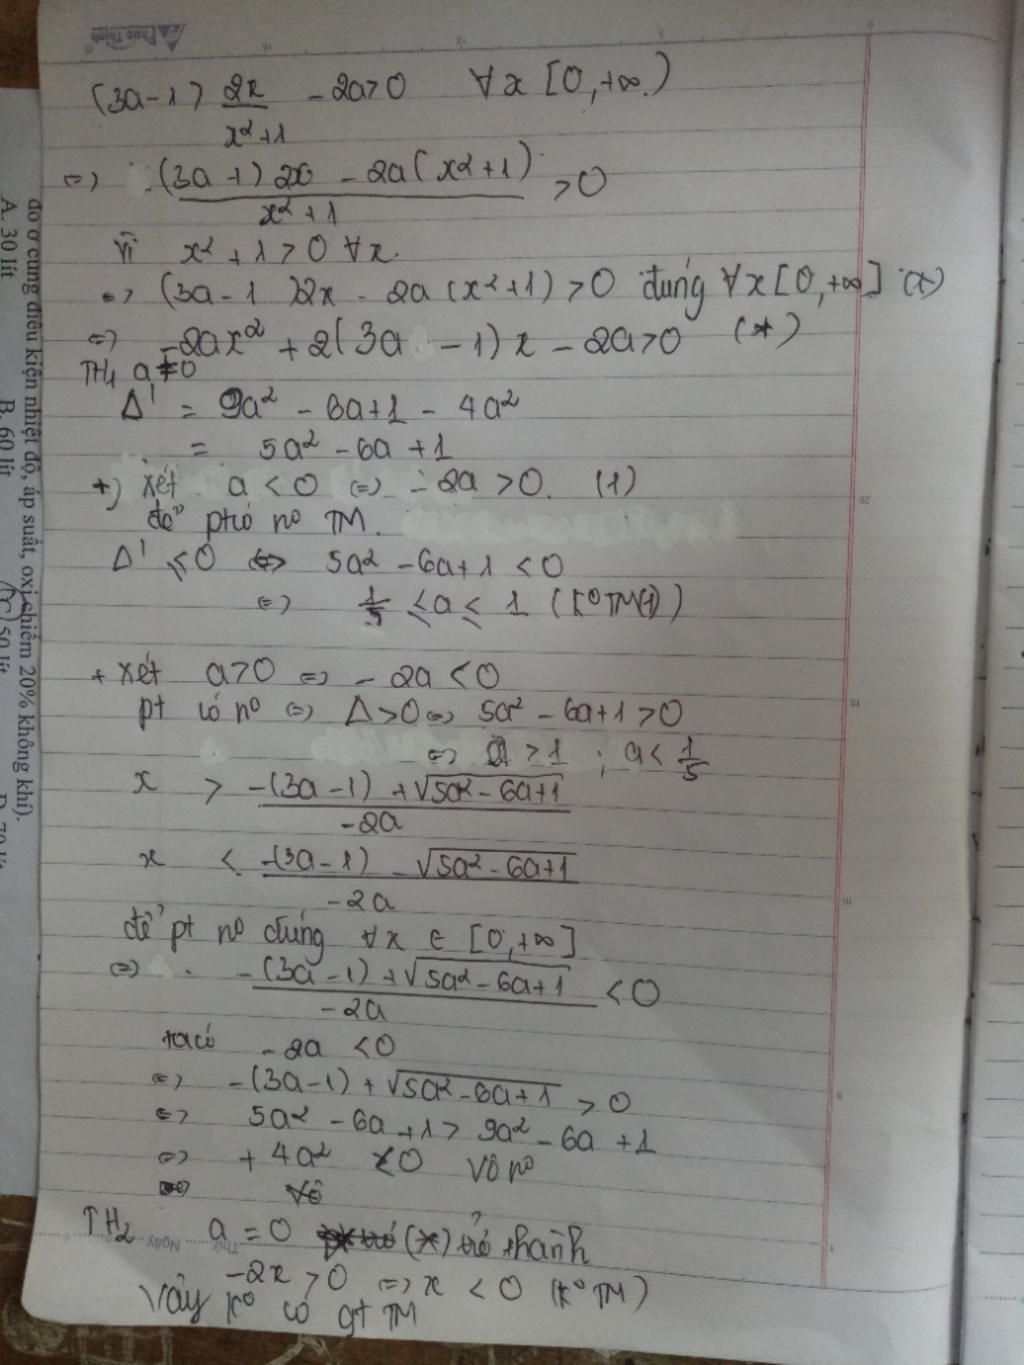 (3a-1) 2x/(x²+1) - 2a>0 ∀x [0,+∞)
<=> ((3a+1) 2x - 2a(x²+1))/(x²+1) >0
Vì x²+1>0 ∀x.
=> (3a-1)2x - 2a(x²+1) >0 đúng ∀x[0,+∞] (*)
<=> -2ax² + 2(3a-1)x - 2a>0 (*)
TH1 a≠0
Δ' = 9a² - 6a+1 - 4a²
= 5a² - 6a +1
+) xét a<0 <=> -2a >0. (1)
để ptcó n⁰ TM.
Δ' ≤0 <=> 5a² - 6a+1 <0
<=> 1/5 ≤ a ≤ 1 (K⁰TM(1))
+ xét a>0 <=> -2a <0
pt có n⁰ <=> Δ>0 <=> 5a² - 6a+1 >0
<=> a >1 ; a< 1/5
x > (-(3a-1) + √(5a²-6a+1))/(-2a)
x < (-(3a-1) - √(5a²-6a+1))/(-2a)
để pt n⁰ đúng ∀x ∈ [0,+∞]
<=> (-(3a-1) + √(5a²-6a+1))/(-2a) <0
ta có -2a <0
<=> -(3a-1) + √(5a²-6a+1) >0
<=> 5a² - 6a+1 > 9a² - 6a +1
<=> +4a² <0 Vô n⁰
Vô
TH2 a=0 (*) trở thành
-2x >0 <=> x <0 (K⁰ TM)
Vậy K⁰ có gt TM
Phúc Thịnh
Thứ Ngày
25
15
10
5
1
do ở cùng điều kiện nhiệt độ, áp suất, oxi chiếm 20% không khí).
A. 30 lít
B. 60 lít
C 50 lít
D. 70 lít